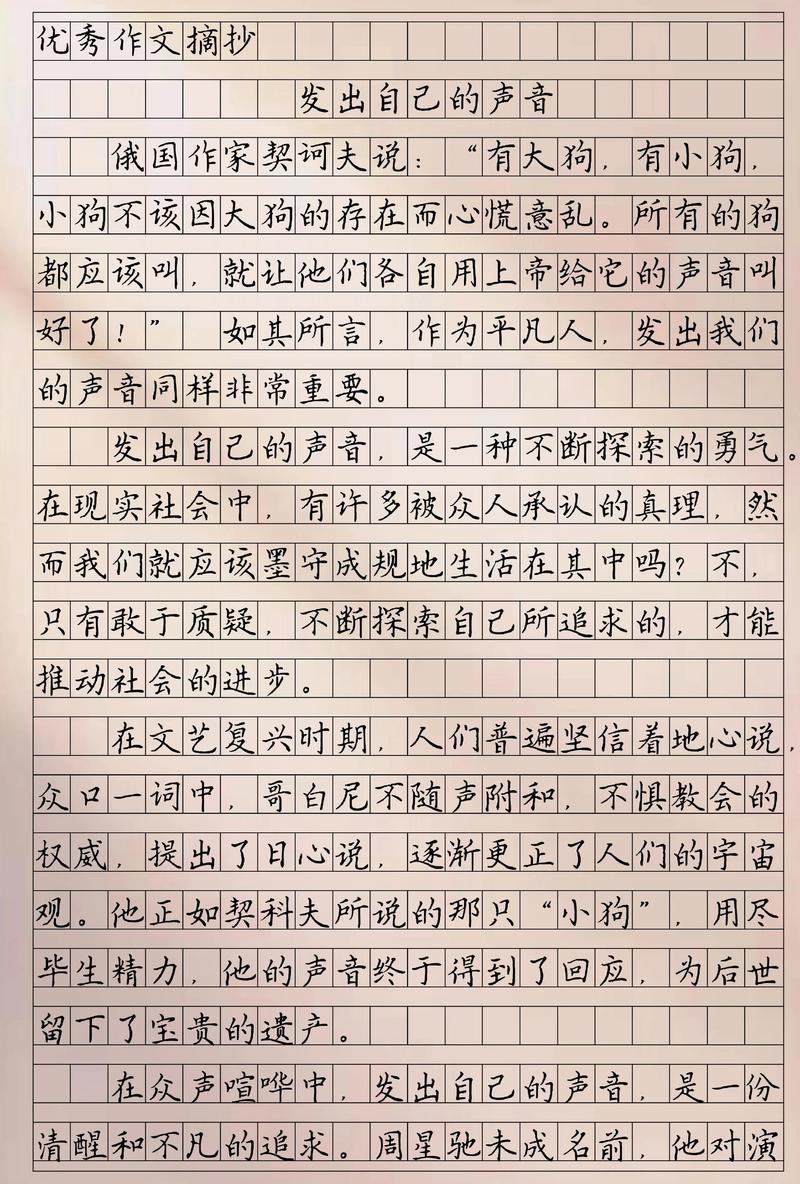 优秀作文摘抄
发出自己的声音
俄国作家契诃夫说：“有大狗，有小狗，
小狗不该因大狗的存在而心慌意乱。所有的狗
都应该叫，就让他们各自用上帝给它的声音叫
好了！” 如其所言，作为平凡人，发出我们
的声音同样非常重要。
发出自己的声音，是一种不断探索的勇气。
在现实社会中，有许多被众人承认的真理，然
而我们就应该墨守成规地生活在其中吗？不，
只有敢于质疑，不断探索自己所追求的，才能
推动社会的进步。
在文艺复兴时期，人们普遍坚信着地心说，
众口一词中，哥白尼不随声附和，不惧教会的
权威，提出了日心说，逐渐更正了人们的宇宙
观。他正如契科夫所说的那只“小狗”，用尽
毕生精力，他的声音终于得到了回应，为后世
留下了宝贵的遗产。
在众声喧哗中，发出自己的声音，是一份
清醒和不凡的追求。周星驰未成名前，他对演